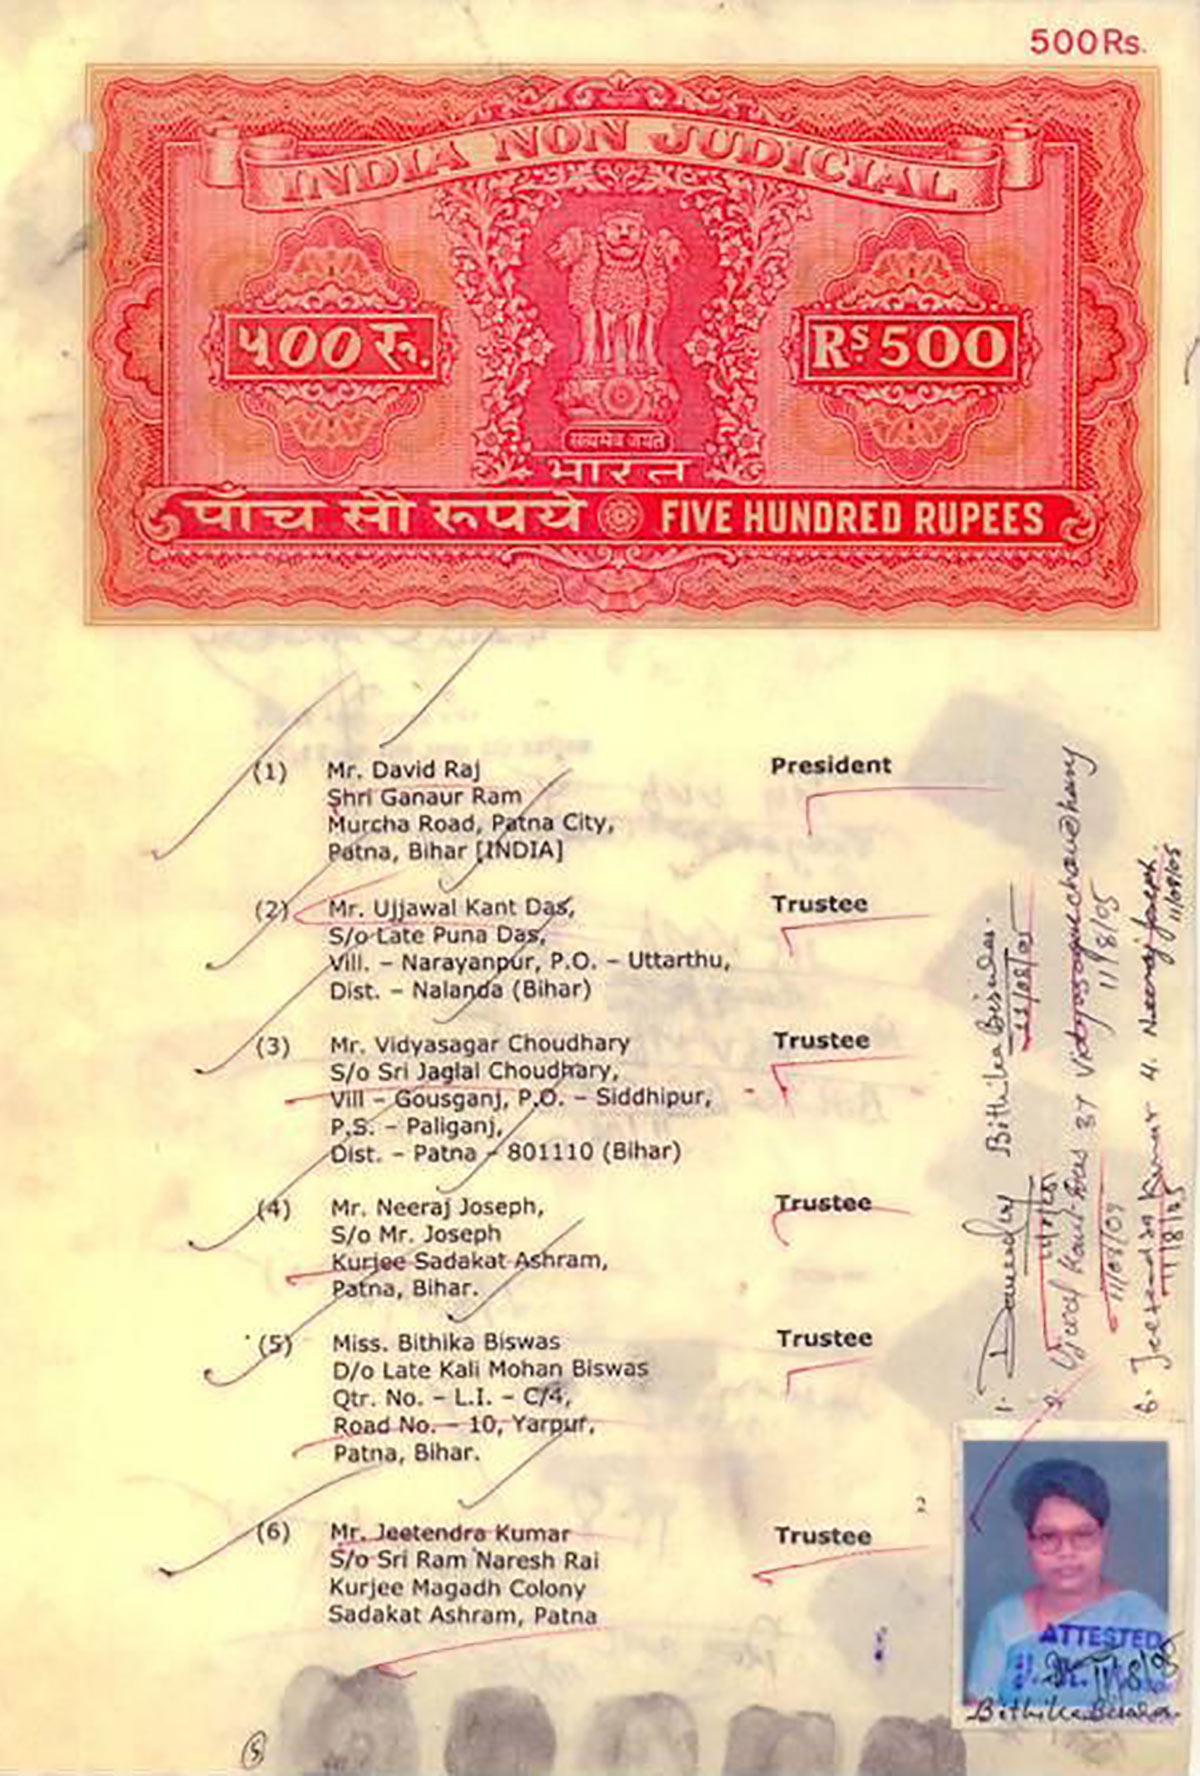 500Rs.
INDIA NON JUDICIAL
५00 रु.
Rs. 500
सत्यमेव जयते
भारत
पाँच सौ रूपये
FIVE HUNDRED RUPEES
(1) Mr. David Raj President
Shri Ganaur Ram
Murcha Road, Patna City,
Patna, Bihar [INDIA]
(2) Mr. Ujjawal Kant Das, Trustee
S/o Late Puna Das,
Vill. – Narayanpur, P.O. – Uttarthu,
Dist. – Nalanda (Bihar)
(3) Mr. Vidyasagar Choudhary Trustee
S/o Sri Jaglal Choudhary,
Vill – Gousganj, P.O. – Siddhipur,
P.S. – Paliganj,
Dist. – Patna – 801110 (Bihar)
(4) Mr. Neeraj Joseph, Trustee
S/o Mr. Joseph
Kurjee Sadakat Ashram,
Patna, Bihar.
(5) Miss. Bithika Biswas Trustee
D/o Late Kali Mohan Biswas
Qtr. No. – L.I. – C/4,
Road No. – 10, Yarpur,
Patna, Bihar.
(6) Mr. Jeetendra Kumar Trustee
S/o Sri Ram Naresh Rai
Kurjee Magadh Colony
Sadakat Ashram, Patna
2
1. Bithika Biswas.
11/08/05
11/8/05
4. Neeraj Joseph.
11/08/05
6. Jeetendra Kumar
11/8/05
ATTESTED
11/8/05
Bithika Biswas.
5